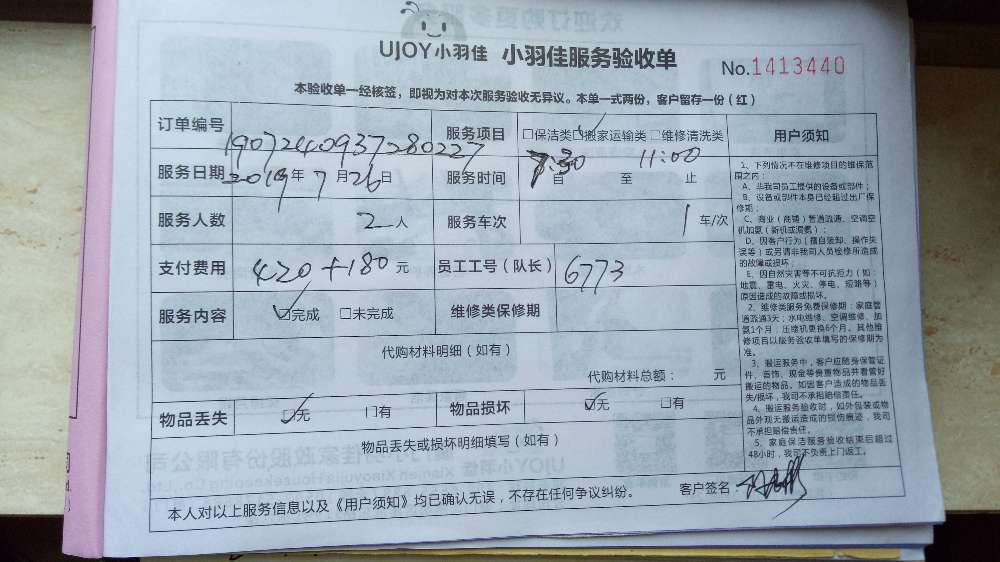 UJOY小羽佳 小羽佳服务验收单 No.1413440
本验收单一经核签，即视为对本次服务验收无异议。本单一式两份，客户留存一份（红）
订单编号 1907240937280227 服务项目 □保洁类☑搬家运输类□维修清洗类 用户须知
服务日期 2019年7月26日 服务时间 7:30自 11:00至 止
服务人数 2人 服务车次 1车/次
支付费用 420+180元 员工工号（队长） 6773
服务内容 ☑完成 □未完成 维修类保修期
代购材料明细（如有）
代购材料总额： 元
物品丢失 ☑无 □有 物品损坏 ☑无 □有
物品丢失或损坏明细填写（如有）
本人对以上服务信息以及《用户须知》均已确认无误，不存在任何争议纠纷。 客户签名：
1、下列情况不在维修项目的维保范
围之内：
A、非我司员工提供的设备或部件；
B、设备或部件本身已经超过出厂保
修期；
C、商业（商铺）普通疏通、空调空
机加氨（新机或漏氨）；
D、因客户行为（擅自装卸、操作失
误等）或另请非我司人员检修所造成
的故障或损坏；
E、因自然灾害等不可抗拒力（如：
地震、雷电、火灾、停电、短路等）
原因造成的故障或损坏。
2、维修类服务免费保修期：家庭普
通疏通3天；水电维修、空调维修、加
氨1个月；压缩机更换6个月。其他维
修项目以服务验收单填写的保修期为
准。
3、搬运服务中，客户应随身保管证
件、首饰、现金等贵重物品并看管好
搬运的物品。如因客户造成的物品丢
失/损坏，我司不承担赔偿责任。
4、搬运服务验收时，如外包装或物
品外观无搬运造成的损伤痕迹，我司
不承担赔偿责任。
5、家庭保洁服务验收结束后超过
48小时，我司不负责上门返工。